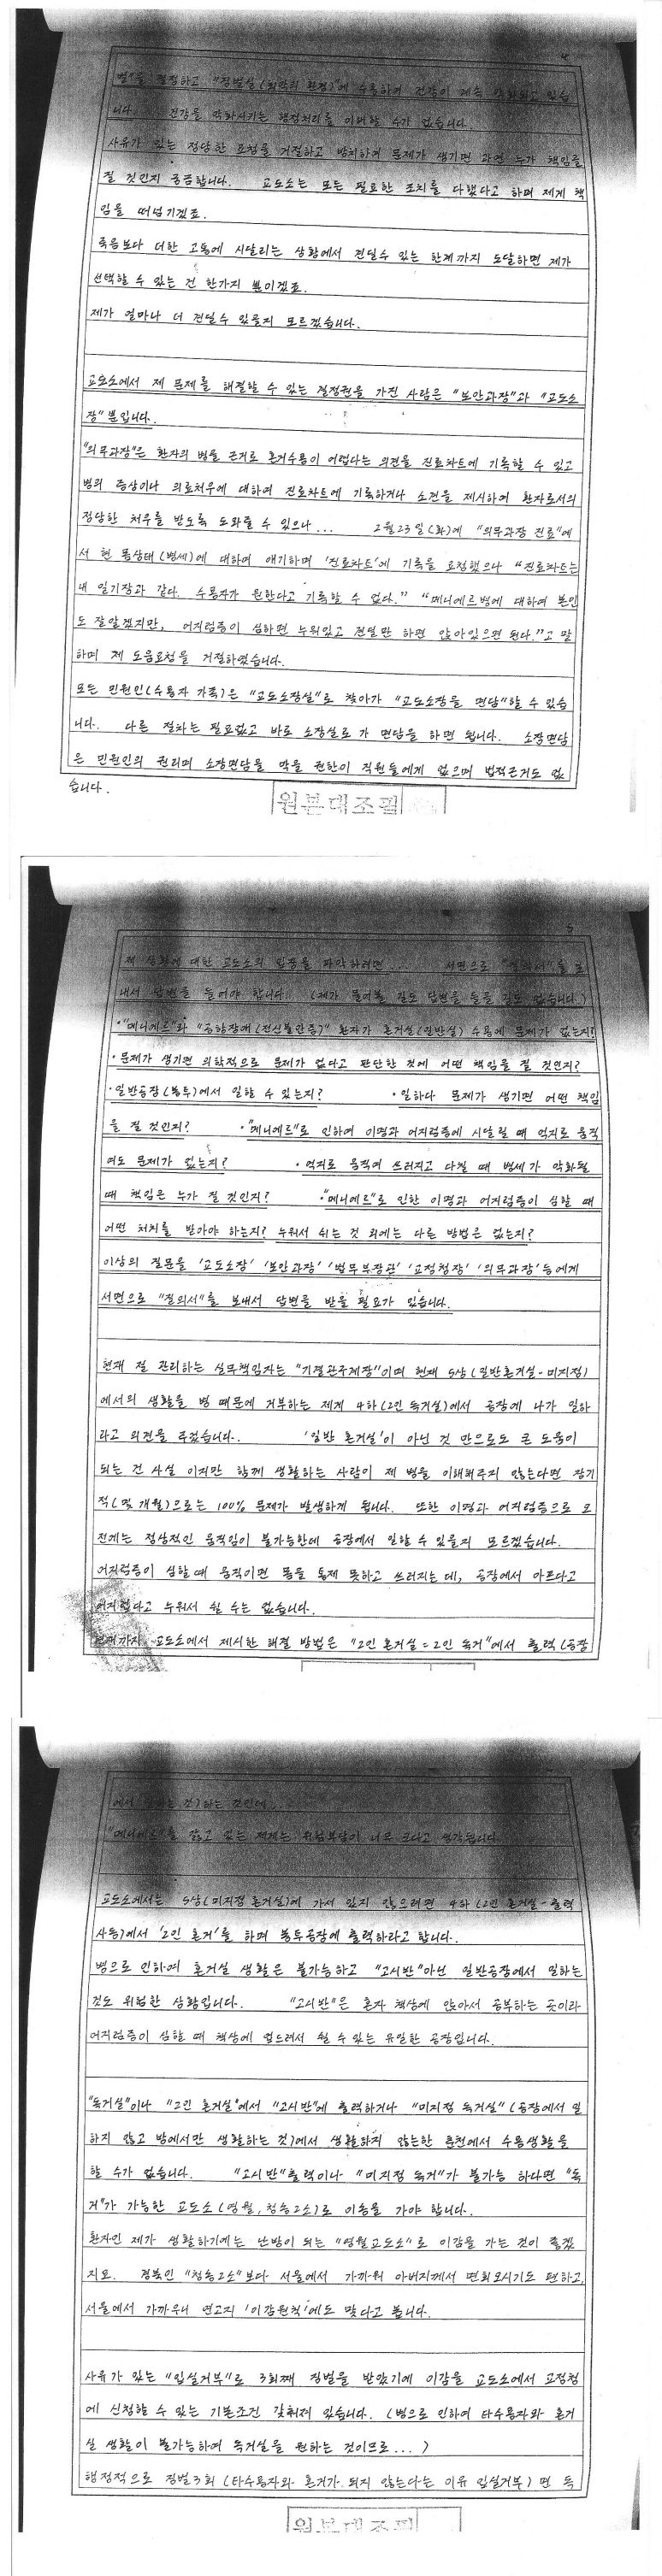 4
벌"을 결정하고 "징벌실(최악의 환경)"에 수용하여 건강이 계속 악화되고 있습
니다. 건강을 악화시키는 행정처리를 이해할 수가 없습니다.
사유가 있는 정당한 요청을 거절하고 방치하여 문제가 생기면 과연 누가 책임을
질 것인지 궁금합니다. 교도소는 모든 필요한 조치를 다했다고 하며 제게 책
임을 떠넘기겠죠.
죽음보다 더한 고통에 시달리는 상황에서 견딜수 있는 한계까지 도달하면 제가
선택할 수 있는 건 한가지 뿐이겠죠.
제가 얼마나 더 견딜수 있을지 모르겠습니다.
교도소에서 제 문제를 해결할 수 있는 결정권을 가진 사람은 "보안과장"과 "교도소
장"뿐입니다.
"의무과장"은 환자의 병을 근거로 혼거수용이 어렵다는 의견을 진료차트에 기록할 수 있고
병의 증상이나 의료처우에 대하여 진료차트에 기록하거나 소견을 제시하여 환자로서의
정당한 처우를 받도록 도와줄 수 있으나... 2월23일(화)에 "의무과장 진료"에
서 현 몸상태(병세)에 대하여 얘기하며 '진료차트'에 기록을 요청했으나 "진료차트는
내 일기장과 같다. 수용자가 원한다고 기록할 수 없다." "메니에르병에 대하여 본인
도 잘알겠지만, 어지럼증이 심하면 누워있고 견딜만 하면 앉아있으면 된다."고 말
하며 제 도움요청을 거절하였습니다.
모든 민원인(수용자 가족)은 "교도소장실"로 찾아가 "교도소장을 면담"할 수 있습
니다. 다른 절차는 필요없고 바로 소장실로 가 면담을 하면 됩니다. 소장면담
은 민원인의 권리며 소장면담을 막을 권한이 직원들에게 없으며 법적근거도 없
습니다.
원본대조필
5
제 상황에 대한 교도소의 입장을 파악하려면... 서면으로 "질의서"를 보
내서 답변을 들어야 합니다. (제가 물어볼 길도 답변을 들을 길도 없습니다.)
·"메니에르"와 "공황장애(전신불안증)" 환자가 혼거실(일반실) 수용에 문제가 없는지?
·문제가 생기면 의학적으로 문제가 없다고 판단한 것에 어떤 책임을 질 것인지?
·일반공장(봉투)에서 일할 수 있는지? ·일하다 문제가 생기면 어떤 책임
을 질 것인지? ·"메니에르"로 인하여 이명과 어지럼증에 시달릴 때 억지로 움직
여도 문제가 없는지? ·억지로 움직여 쓰러지고 다칠 때 병세가 악화될
때 책임은 누가 질 것인지? ·"메니에르"로 인한 이명과 어지럼증이 심할 때
어떤 처치를 받아야 하는지? 누워서 쉬는 것 외에는 다른 방법은 없는지?
이상의 질문을 '교도소장' '보안과장' '법무부장관' '교정청장' '의무과장'등에게
서면으로 "질의서"를 보내서 답변을 받을 필요가 있습니다.
현재 절 관리하는 실무책임자는 "기결관구계장"이며 현재 5상(일반혼거실-미지정)
에서의 생활을 병 때문에 거부하는 제게 4하(2인 독거실)에서 공장에 나가 일하
라고 의견을 주었습니다. '일반 혼거실'이 아닌 것 만으로도 큰 도움이
되는 건 사실 이지만 함께 생활하는 사람이 제 병을 이해해주지 않는다면 장기
적(몇 개월)으로는 100% 문제가 발생하게 됩니다. 또한 이명과 어지럼증으로 오
전에는 정상적인 움직임이 불가능한데 공장에서 일할 수 있을지 모르겠습니다.
어지럼증이 심할때 움직이면 몸을 통제 못하고 쓰러지는데, 공장에서 아프다고
어지럽다고 누워서 쉴 수는 없습니다.
현재까지 교도소에서 제시한 해결 방법은 "2인 혼거실=2인 독거"에서 출력(공장
에서 하는 것)하는 것인데..
"메니에르"를 앓고 있는 제게는 위험부담이 너무 크다고 생각됩니다.
교도소에서는 5상(미지정 혼거실)에 가서 있지 않으려면 4하(2인 혼거실-출력
사동)에서 '2인 혼거'를 하며 봉투공장에 출력하라고 합니다.
병으로 인하여 혼거실 생활은 불가능하고 "고시반"아닌 일반공장에서 일하는
것도 위험한 상황입니다. "고시반"은 혼자 책상에 앉아서 공부하는 곳이라
어지럼증이 심할 때 책상에 엎드려서 쉴 수 있는 유일한 공장입니다.
"독거실"이나 "2인 혼거실"에서 "고시반"에 출력하거나 "미지정 독거실"(공장에서 일
하지 않고 방에서만 생활하는 것)에서 생활하지 않는한 춘천에서 수용생활을
할 수가 없습니다. "고시반"출력이나 "미지정 독거"가 불가능 하다면 "독
거"가 가능한 교도소(영월, 청송2소)로 이송을 가야 합니다.
환자인 제가 생활하기에는 난방이 되는 "영월교도소"로 이감을 가는 것이 좋겠
지요. 경북인 "청송2소"보다 서울에서 가까워 아버지께서 면회오시기도 편하고,
서울에서 가까우니 연고지 '이감원칙'에도 맞다고 봅니다.
사유가 있는 "입실거부"로 3회째 징벌을 받았기에 이감을 교도소에서 교정청
에 신청할 수 있는 기본조건 갖춰져 있습니다. (병으로 인하여 타수용자와 혼거
실 생활이 불가능하여 독거실을 원하는 것이므로...)
행정적으로 징벌3회(타수용자와 혼거가 되지 않는다는 이유 입실거부)면 독
원본대조필